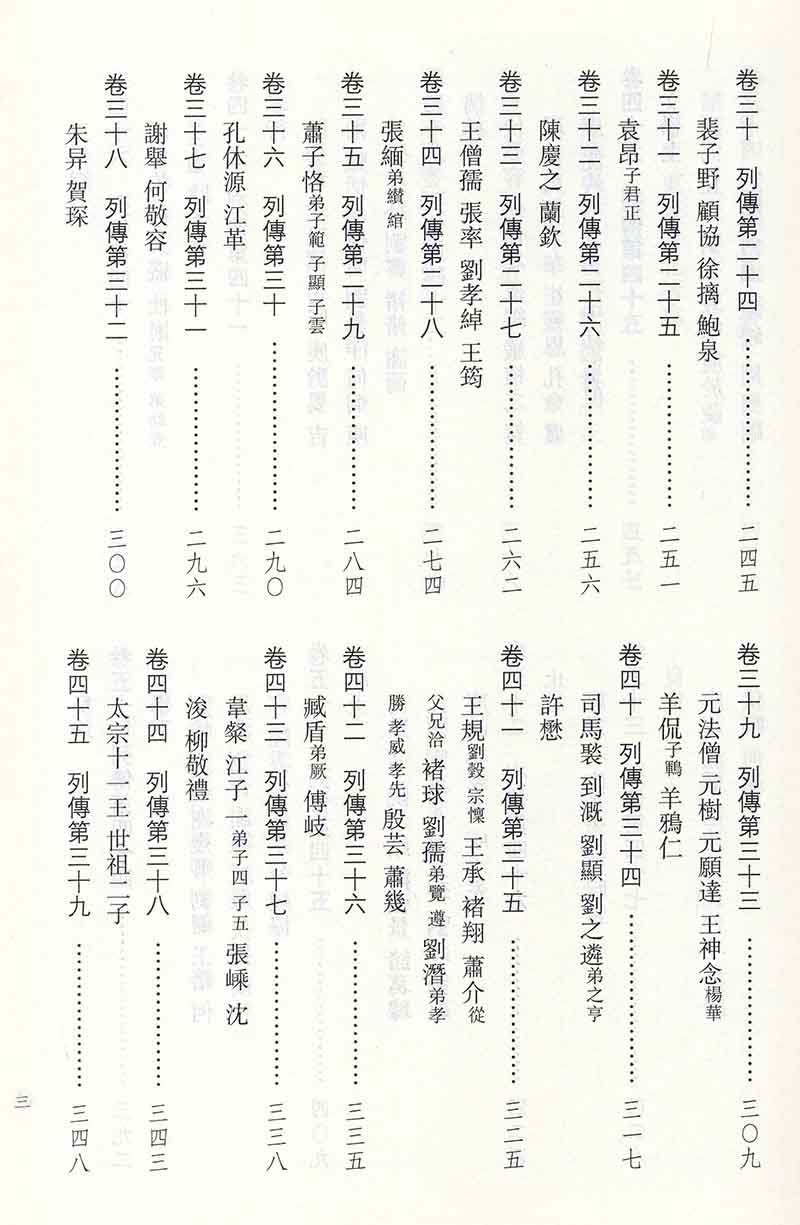 卷三十　列傳第二十四……………………二四五
裴子野 顧協 徐摛 鮑泉
卷三十一　列傳第二十五……………………二五一
袁昂子君正
卷三十二　列傳第二十六……………………二五六
陳慶之 蘭欽
卷三十三　列傳第二十七……………………二六二
王僧孺 張率 劉孝綽 王筠
卷三十四　列傳第二十八……………………二七四
張緬弟纘 綰
卷三十五　列傳第二十九……………………二八四
蕭子恪弟子範 子顯 子雲
卷三十六　列傳第三十……………………二九〇
孔休源 江革
卷三十七　列傳第三十一……………………二九六
謝舉 何敬容
卷三十八　列傳第三十二……………………三〇〇
朱异 賀琛
卷三十九　列傳第三十三……………………三〇九
元法僧 元樹 元願達 王神念楊華
羊侃子鵾 羊鴉仁
卷四十　列傳第三十四……………………三一七
司馬褧 到溉 劉顯 劉之遴弟之亨
許懋
卷四十一　列傳第三十五……………………三二五
王規劉瑴 宗懍 王承 褚翔 蕭介從
父兄洽 褚球 劉孺弟覽 遵 劉潛弟孝
勝 孝威 孝先 殷芸 蕭幾
卷四十二　列傳第三十六……………………三三五
臧盾弟厥 傅岐
卷四十三　列傳第三十七……………………三三八
韋粲 江子一弟子四 子五 張嵊 沈
浚 柳敬禮
卷四十四　列傳第三十八……………………三四三
太宗十一王 世祖二子
卷四十五　列傳第三十九……………………三四八
三